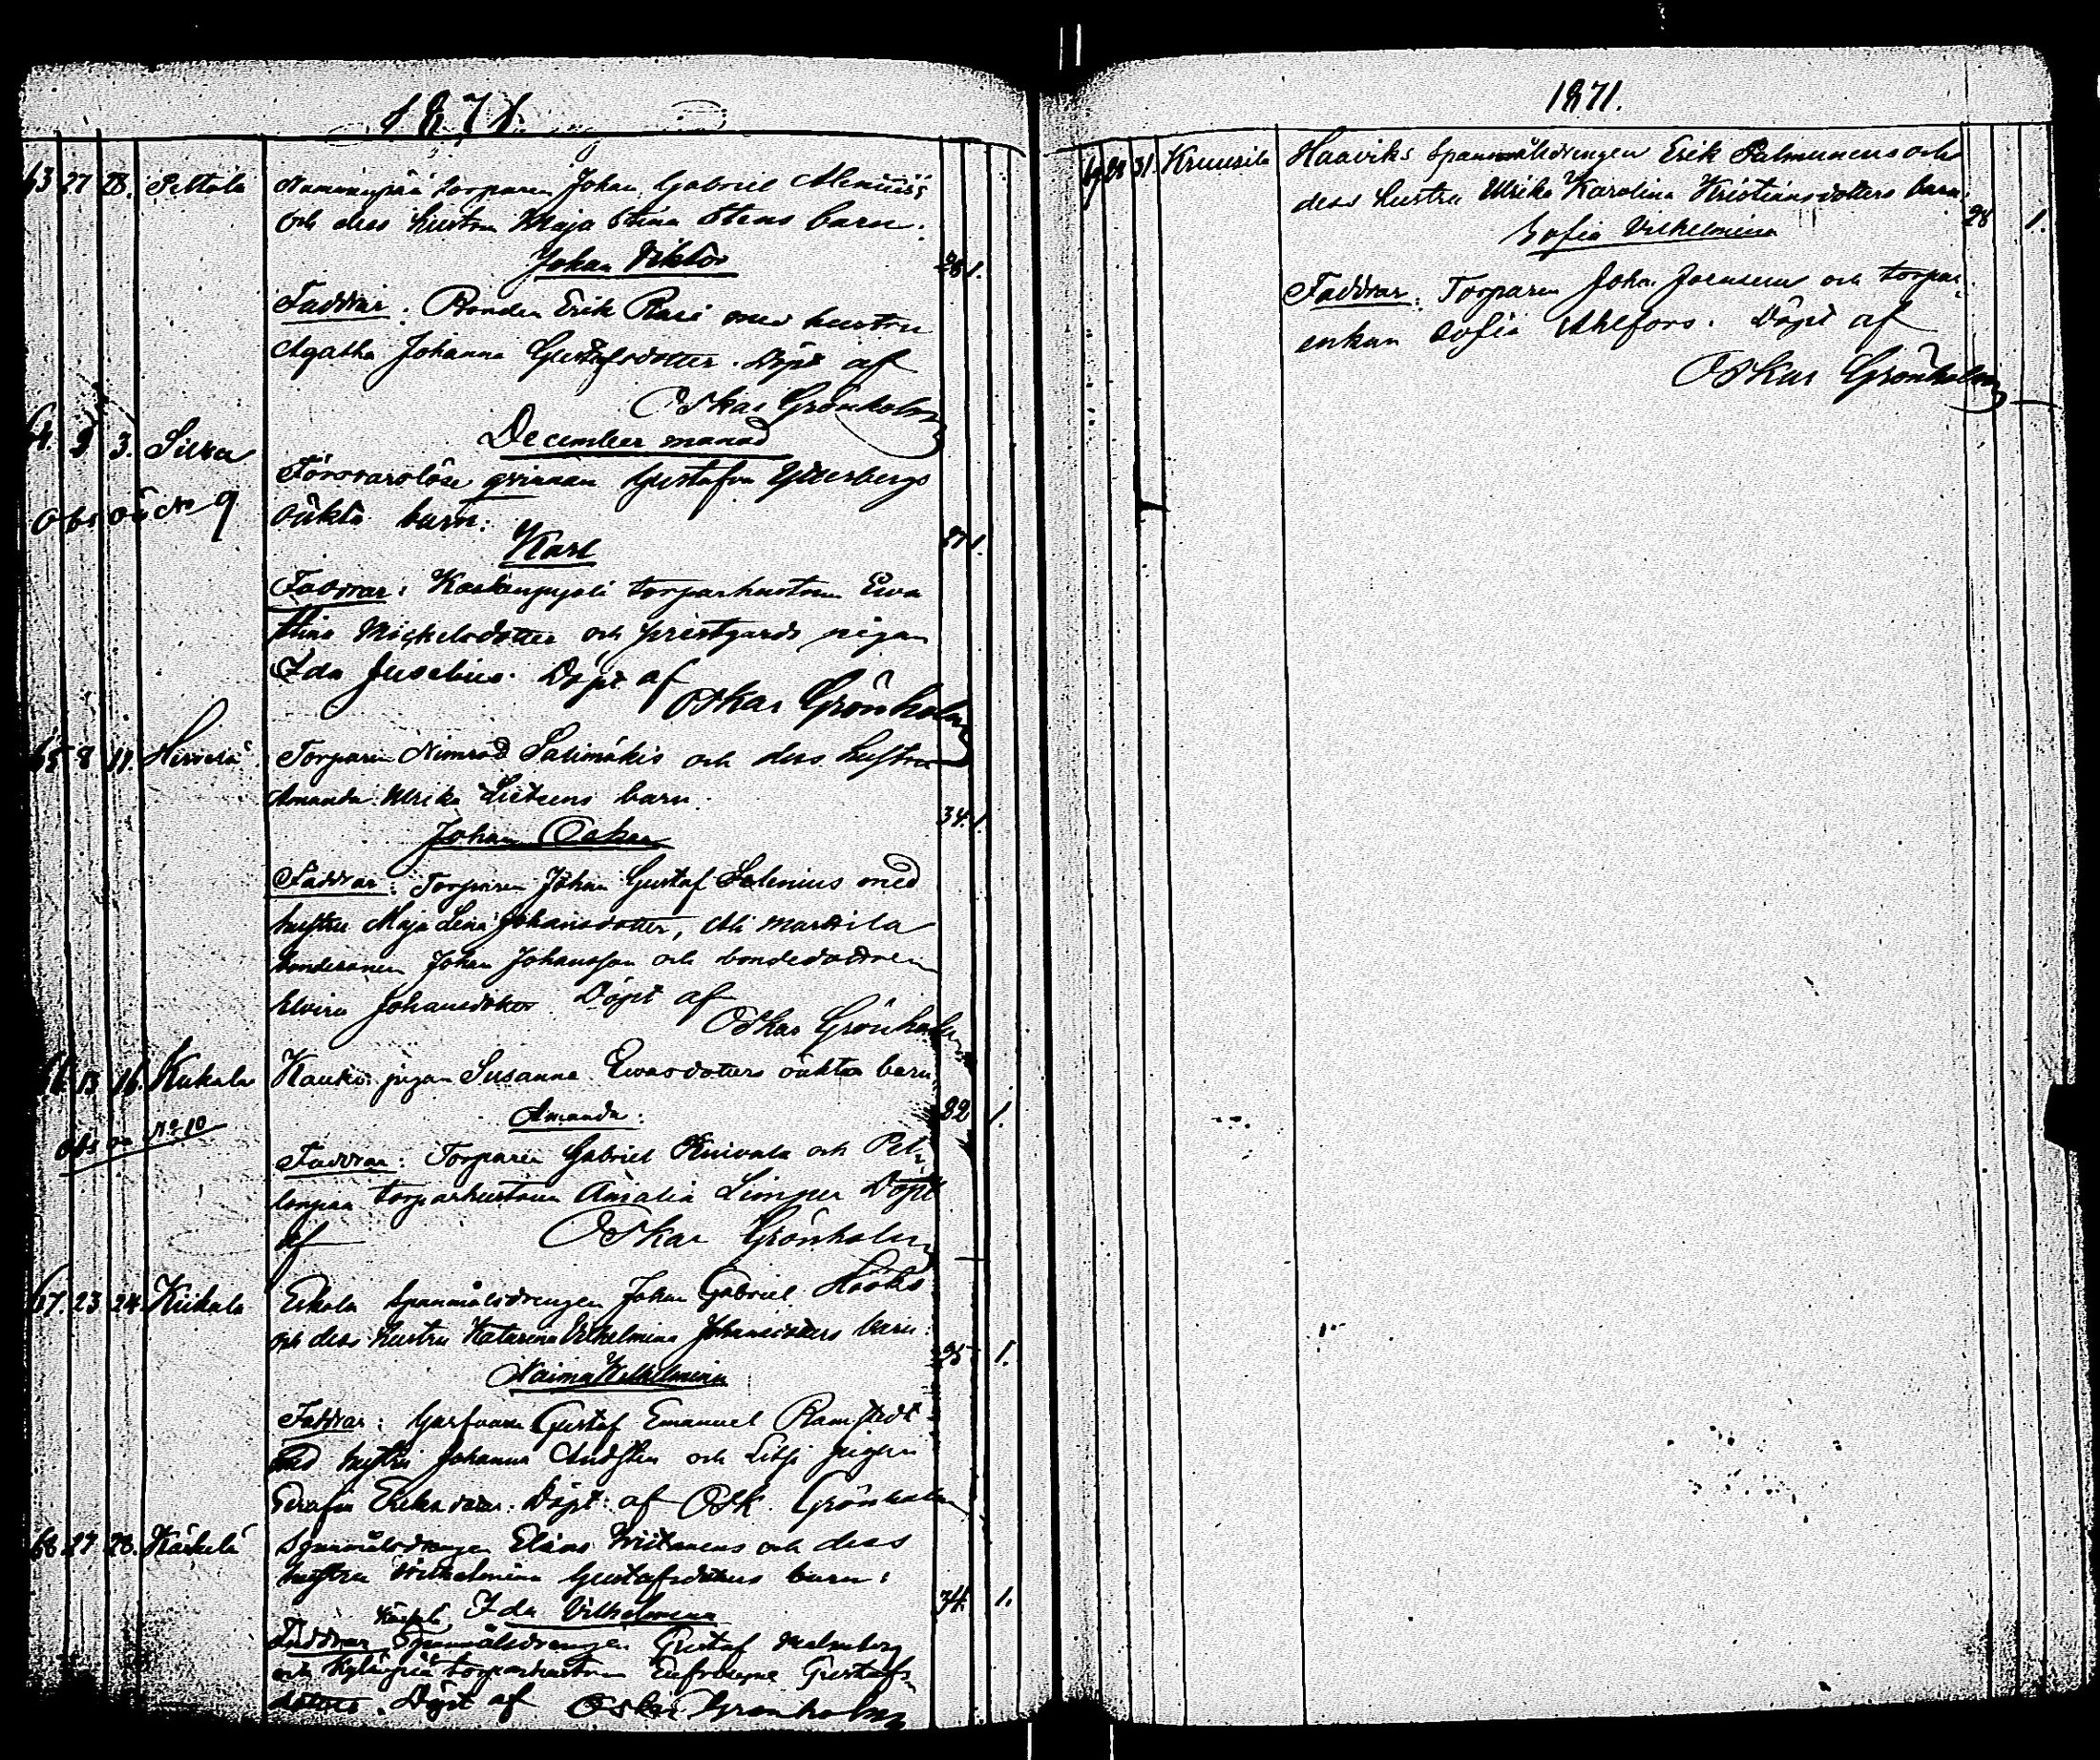 1871.
63 27 28. Peltola Nummenpää torparen Johan Gabriel Alenius's
och dess hustru Maja Stina Stens barn:
Johan Viktor
26 1.
Faddrar: Bonden Erik Rasi med hustru
Agatha Johanna Gustafsdotter. Döpt af
Oskar Grönholm
December månad
64. 3 3. Silva Försvarslösa qvinnan Gustafva Ytterbergs
obs oä No 9 oäkta barn:
Karl
37 1.
Faddrar: torparhustrun Ewa
Stina Michelsdotter och prestgårds pigan
Ida Juselius. Döpt af
Oskar Grönholm
65 8 11. Torparen Nimrod Salimäkis och dess hustru
Amanda Ulrika barn.
Johan Oskar
34. 1.
Faddrar: Torparen Johan Gustaf Salenius med
hustru Maja Lena Johansdotter, Ali Marttila
bondesonen Johan Johansson och bondedottren
Elvira Johansdotter Döpt af
Oskar Grönholm
66 13 16. Kukala Kauko pigan Susanna Ewasdotters oäkta barn
Amanda:
32 1.
obs oä No 10
Faddrar: Torparen Gabriel och Pel-
lonpää torparhustrun Amalia Limper Döpt
af Oskar Grönholm
67. 23 24. Kiikala Erkola spanmålsdrengen Johan Gabriel Hööks
och dess hustru Katarina Vilhelmina Johansdotters barn:
25 1.
Naima Wilhelmina
Faddrar: Garfvaren Gustaf Emanuel Ramstedt
med hustru Johanna och pigan
Serafia Eriksdotter. Döpt: af Osk. Grönholm
68. 27. 28. Kärkelä Spanmålsdrengen Elias Wiitanens och dess
hustru Wilhelmina Gustafsdotters barn:
34. 1.
Ida Vilhelmina
Faddrar Spanmålsdrengen Gustaf Malmberg
och torparhustrun Eufrosyne Gustafs-
dotter. Döpt af Oskar Grönholm
1871.
69 28 31. Kruusila Haaviks Spanmålsdrengen Erik Salminens och
dess hustru Ulrika Karolina Kristiansdotters barn:
Sofia Vilhelmina
28 1.
Faddrar: Torparen Johan och torpar-
enkan Sofia Ahlfors. Döpt af
Oskar Grönholm